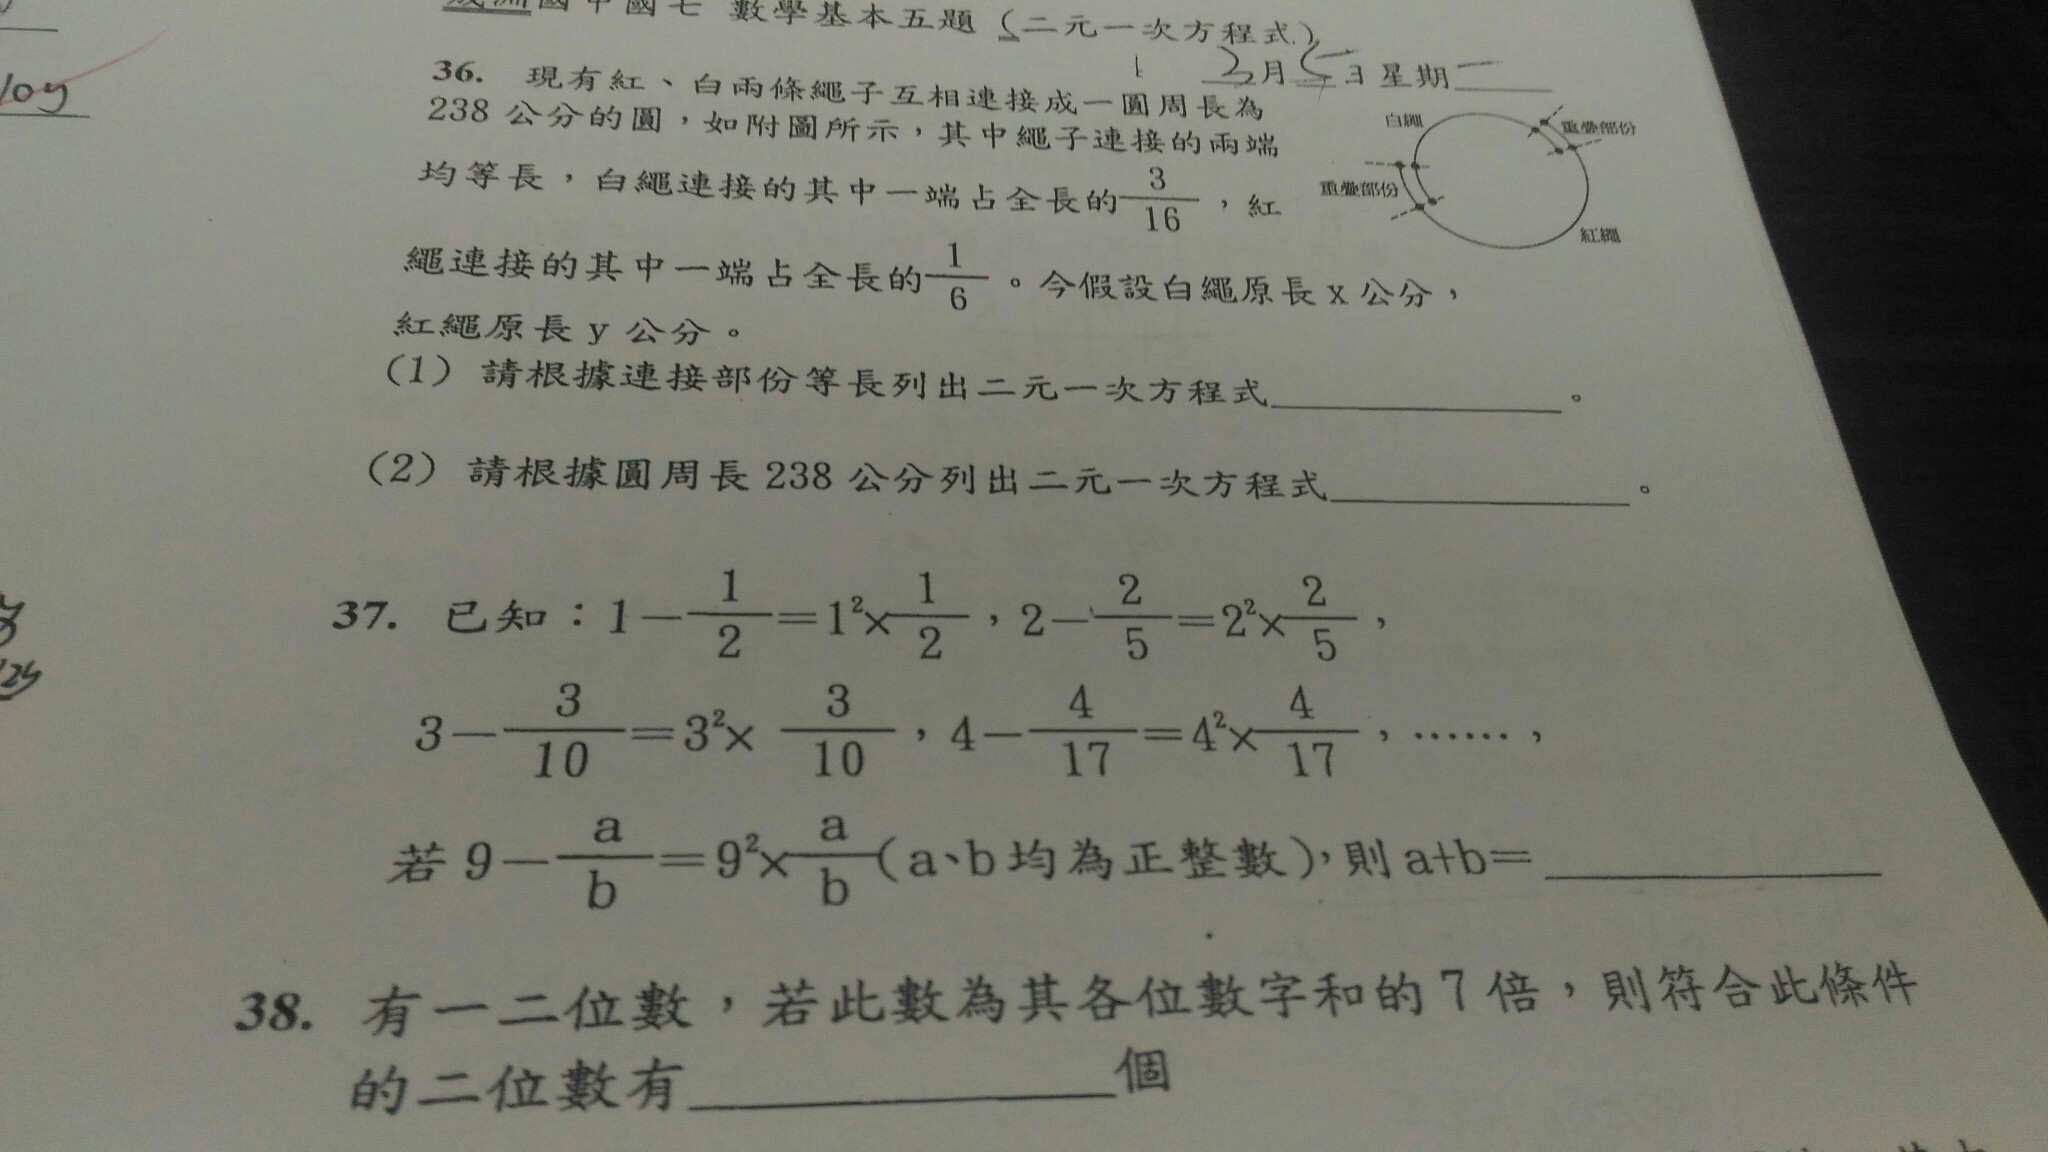 國中國七 數學基本五題 (二元一次方程式)
3月5日星期一
loy
36. 現有紅、白兩條繩子互相連接成一圓周長為
238公分的圓,如附圖所示,其中繩子連接的兩端
均等長,白繩連接的其中一端占全長的3/16,紅
繩連接的其中一端占全長的1/6。今假設白繩原長x公分,
紅繩原長y公分。
白繩
重疊部份
重疊部份
紅繩
(1) 請根據連接部份等長列出二元一次方程式________。
(2) 請根據圓周長238公分列出二元一次方程式________。
37. 已知:1-1/2=1²×1/2,2-2/5=2²×2/5,
3-3/10=3²×3/10,4-4/17=4²×4/17,……,
若9-a/b=9²×a/b(a、b均為正整數),則a+b=________
38. 有一二位數,若此數為其各位數字和的7倍,則符合此條件
的二位數有________個